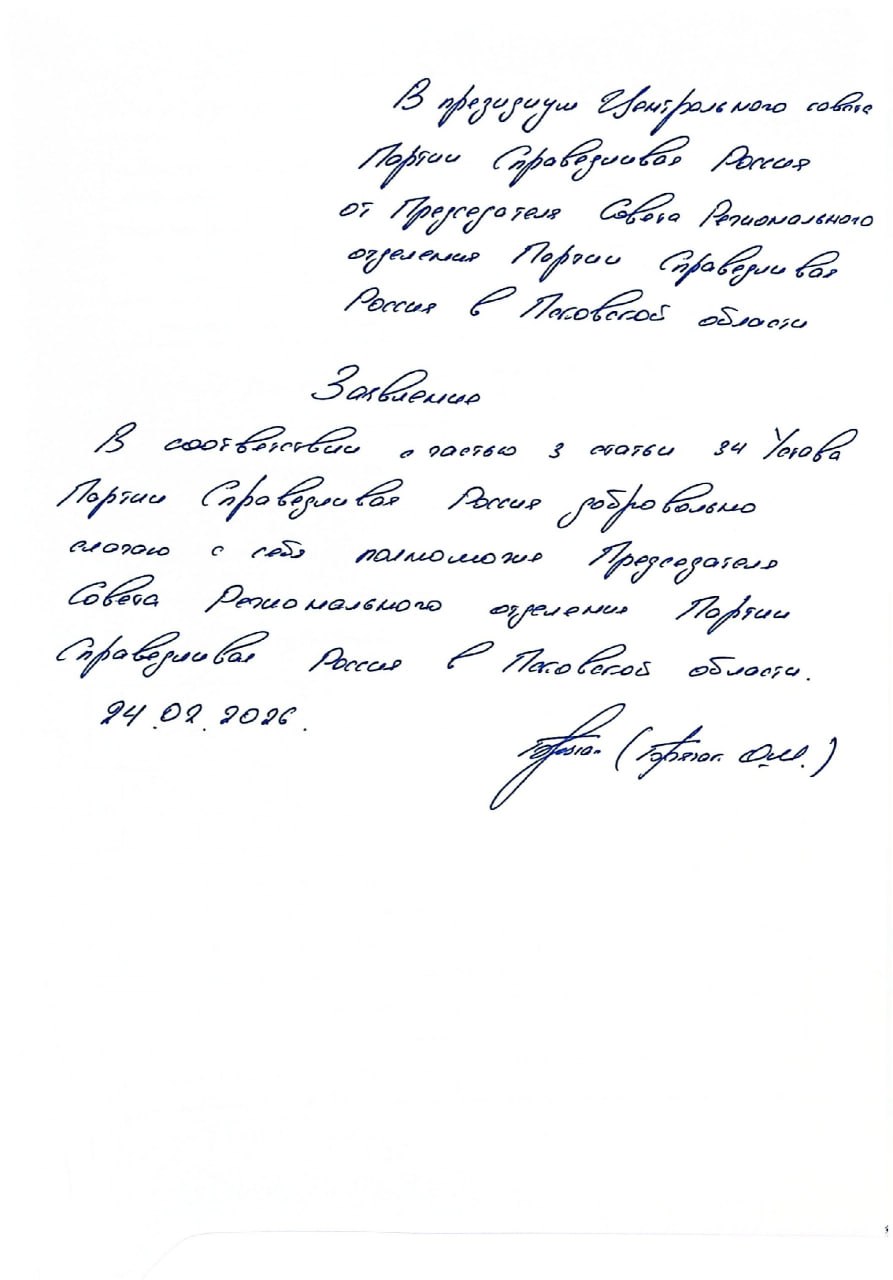 В президиум Центрального совета
Партии Справедливая Россия
от Председателя Совета Регионального
отделения Партии Справедливая
Россия в Псковской области
Заявление
В соответствии с частью 3 статьи 34 Устава
Партии Справедливая Россия добровольно
слагаю с себя полномочия Председателя
Совета Регионального отделения Партии
Справедливая Россия в Псковской области.
24.02.2026.
О.М.)